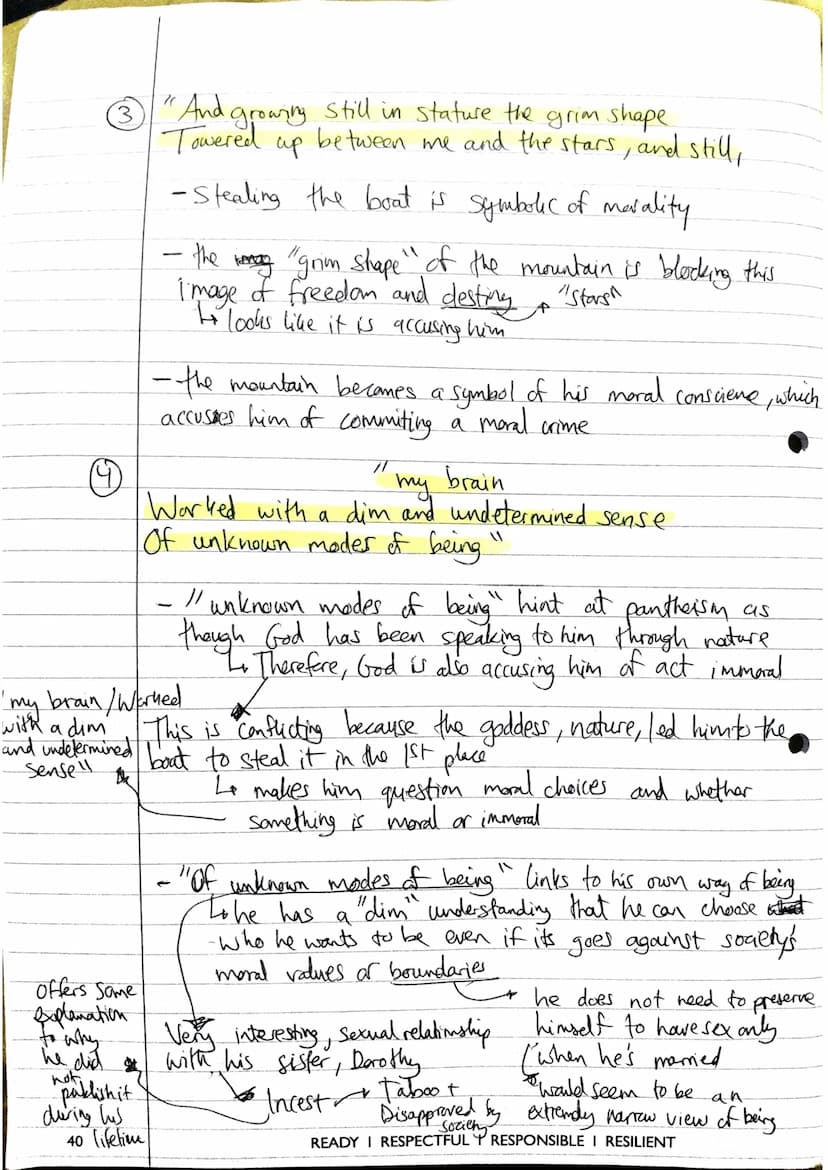 ③ "And growing still in stature the grim shape
Towered up between me and the stars, and still,
- Stealing the boat is symbolic of morality
- the "grim shape" of the mountain is blocking this
image of freedom and destiny "Stars"
↳ looks like it is accusing him
- the mountain becomes a symbol of his moral consciene, which
accuses him of commiting a moral crime
④ "my brain
Worked with a dim and undetermined sense
Of unknown modes of being"
- "unknown modes of being" hint at pantheism as
though God has been speaking to him through nature
↳ Therefore, God is also accusing him of act immoral
"my brain / Worked
with a dim
and undetermined
sense"
This is conflicting because the goddess, nature, led him to the
boat to steal it in the 1st place
↳ makes him question moral choices and whether
something is moral or immoral
- "Of unknown modes of being" links to his own way of being
↳ he has a "dim" understanding that he can choose
who he wants to be even if its goes against society's
moral values or boundaries
he does not need to preserve
himself to have sex only
when he's married
would seem to be an
extremely narrow view of being
Very interesting, sexual relationship
with his sister, Dorothy
Incest → Taboo +
Disapproved by
society
Offers some
explanation
to why
he did
not
publish it
during his
lifetime
40
READY | RESPECTFUL | RESPONSIBLE | RESILIENT